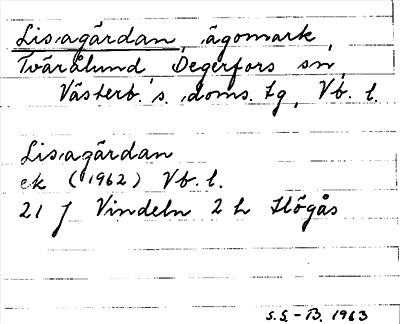 Lisagärdan, ägomark,
Tvärålund, Degerfors sn,
Västerb. s. doms. tg, Vb. l.
Lisagärdan
ek (1962) Vb. l.
21 J Vindeln 2 h Högås
S.S.-B. 1963